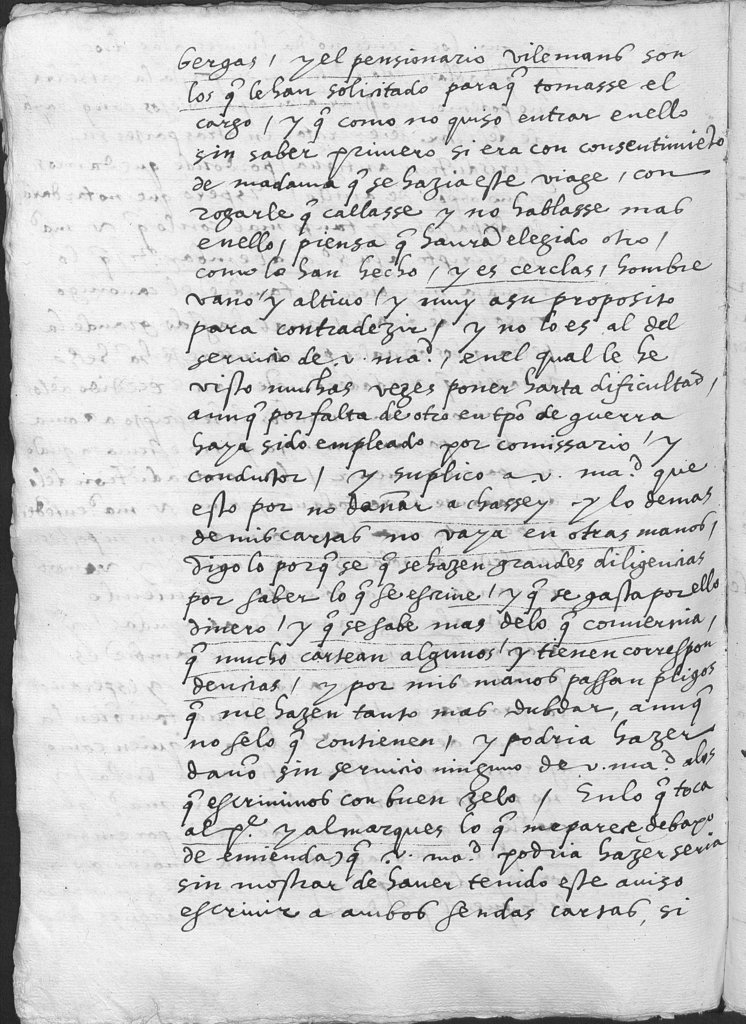 bergas / y el pensionario vilemans son
los q̃ le han solicitado paraq̃ tomasse el
cargo / y q̃ como no quiso entrar enello
sin saber primero si era con consentimiẽto
de madama q̃ se hazia este viage / con
rogarle q̃ callasse y no hablasse mas
enello / piensa q̃ haura elegido otro /
como lo han hecho / y es cerclas / hombre
vano / y altiuo / y muy a su proposito
para contradezir / y no lo es al del
seruicio de .v. mad. / enel qual le he
visto muchas vezes poner harta dificultad /
aunq̃ por falta de otro en tpõ de guerra
haya sido empleado por comissario / y
conductor / y suplico a v. mad. que
esto por no dañar a chassey y lo demas
de mis cartas no vaya en otras manos /
digo lo porq̃ se q̃ se hazen grandes diligencias
por saber lo q̃ se escriue / y q̃ se gasta por ello
dinero / y q̃ se sabe mas delo q̃ conuernia /
q̃ mucho cartean algunos / y tienen correspon
dencias / y por mis manos passan pligos
q̃ me hazen tanto mas dubdar, aunq̃
no se lo q̃ contienen / y podria hazer
daño sin seruicio ninguno de v. mad. alos
q̃ escriuimos con buen zelo / Enlo q̃ toca
al pe. y al marques lo q̃ me parece debaxo
de emienda) q̃ .v. mad. podria hazer seria
sin mostrar de hauer tenido este auiso
escriuir a ambos sendas cartas, si